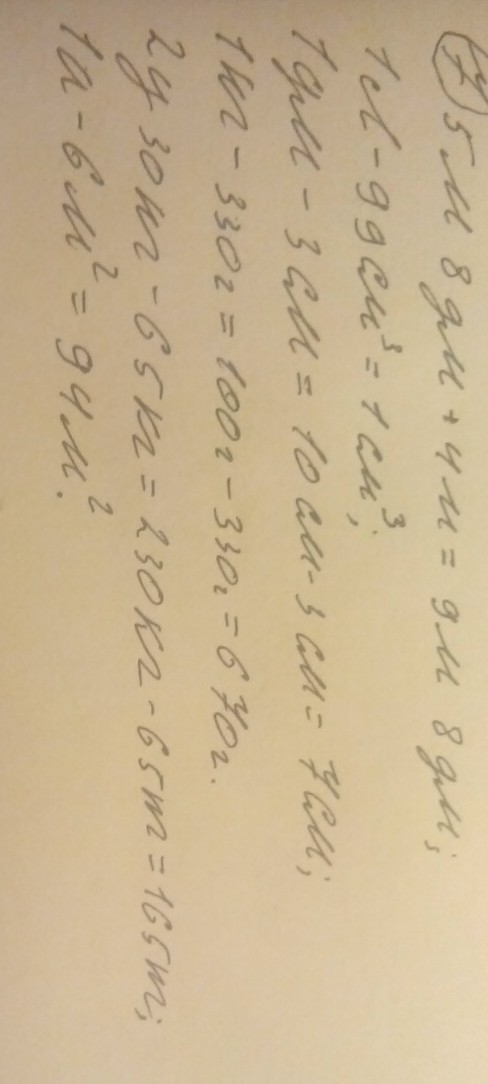 7 5 м 8 дм + 4 м = 9 м 8 дм;
1 л - 99 см³ = 1 см³;
1 дм - 3 см = 10 см - 3 см = 7 см;
1 кг - 330 г = 100 г - 330 г = 670 г.
2 ц 30 кг - 65 кг = 230 кг - 65 т = 165 т;
1 а - 6 м² = 94 м².